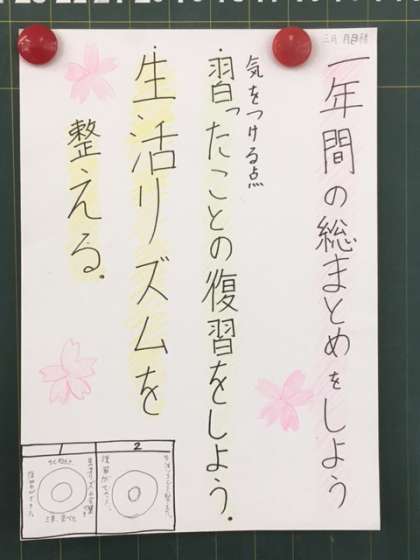 三月 月目標
一年間の総まとめをしよう
気をつける点
・習ったことの復習をしよう。
・生活リズムを
整える。
1
2